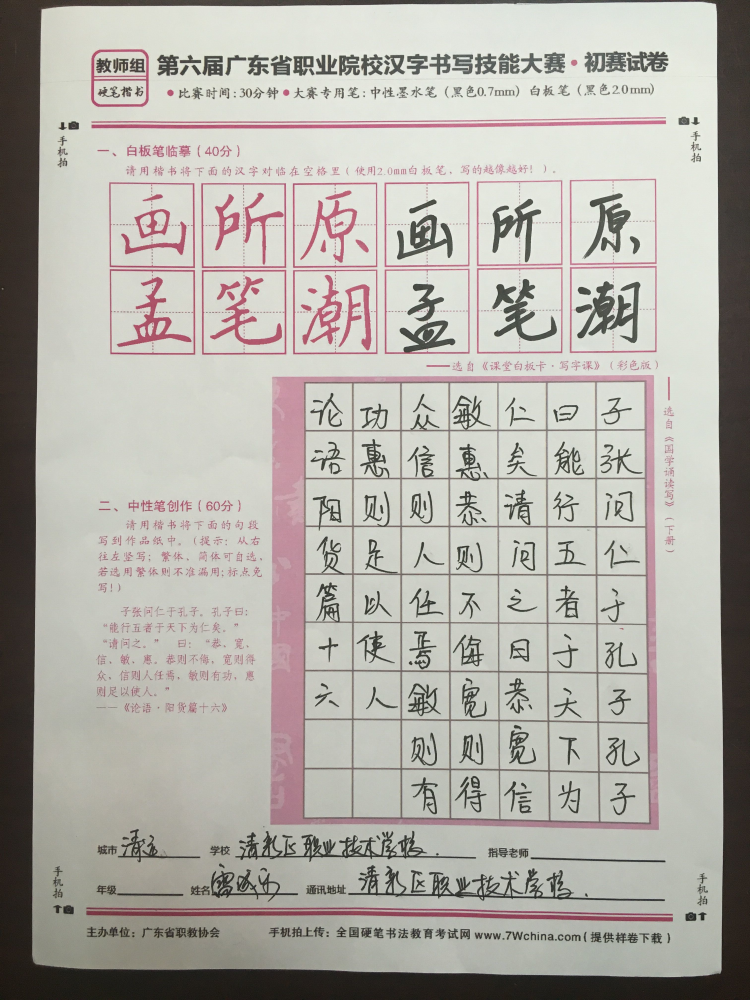 教师组
硬笔楷书
第六届广东省职业院校汉字书写技能大赛·初赛试卷
●比赛时间:30分钟 ●大赛专用笔:中性墨水笔（黑色0.7mm）白板笔（黑色2.0mm）
手机拍
手机拍
一、白板笔临摹（40分）
请用楷书将下面的汉字对临在空格里（使用2.0mm白板笔、写的越像越好！）。
画所原画所原
孟笔潮孟笔潮
——选自《课堂白板卡·写字课》（彩色版）
——选自《国学诵读写》（下册）
二、中性笔创作（60分）
请用楷书将下面的句段
写到作品纸中。（提示：从右
往左竖写；繁体、简体可自选，
若选用繁体则不准漏用;标点免
写！）
子张问仁于孔子。孔子曰：
“能行五者于天下为仁矣。”
“请问之。” 曰：“恭、宽、
信、敏、惠。恭则不侮，宽则得
众，信则人任焉，敏则有功，惠
则足以使人。”
——《论语·阳货篇十六》
子张问仁子孔子孔子
曰能行五者于天下为
仁矣请问之曰恭宽信
敏惠恭则不侮宽则得
众信则人任焉敏则有
功惠则足以使人
论语阳货篇十六
城市 清远 学校 清新区职业技术学校. 指导老师
年级 姓名 通讯地址 清新区职业技术学校.
手机拍
手机拍
主办单位：广东省职教协会 手机拍上传：全国硬笔书法教育考试网 www.7Wchina.com（提供样卷下载）